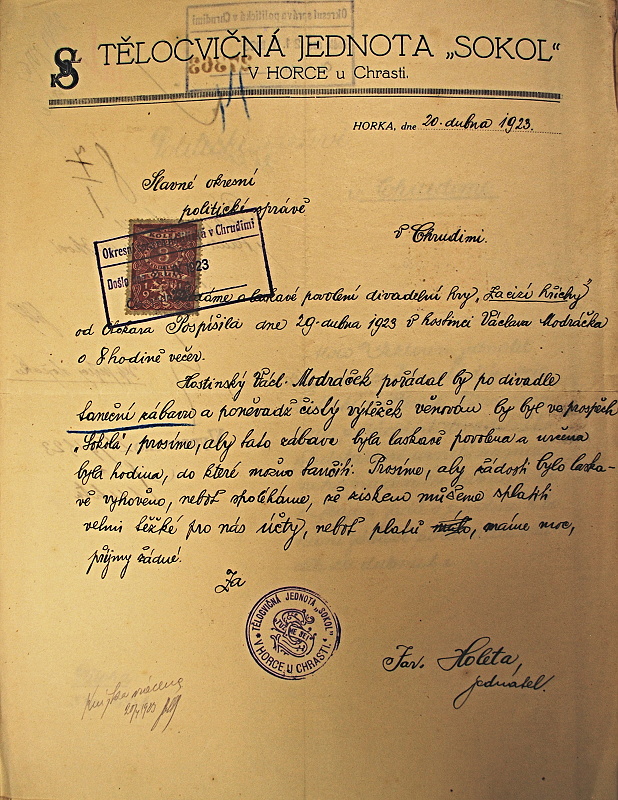 TĚLOCVIČNÁ JEDNOTA „SOKOL“
V HORCE u Chrasti.
HORKA, dne 20. dubna 1923.
Slavné okresní
politické správě
v Chrudimi.
Okres v Chrudimi
Došlo 1923
žádáme o laskavé povolení divadelní hry, „Za cizí hříchy“
od Otokara Pospíšila dne 29. dubna 1923 v hostinci Václava Modráčka
o 8 hodině večer.
Hostinský Václ. Modráček pořádal by po divadle
taneční zábavu a poněvadž čistý výtěžek věnován by byl ve prospěch
„Sokola“, prosíme, aby tato zábava byla laskavě povolena a určena
byla hodina, do které možno tančiti. Prosíme, aby žádosti bylo laska-
vě vyhověno, neboť spoléháme, že ziskem můžeme splatiti
velmi těžké pro nás účty, neboť platů máme moc,
příjmy žádné.
Za
TĚLOCVIČNÁ JEDNOTA „SOKOL“
V HORCE U CHRASTI.
Jar. Holeta,
jednatel.